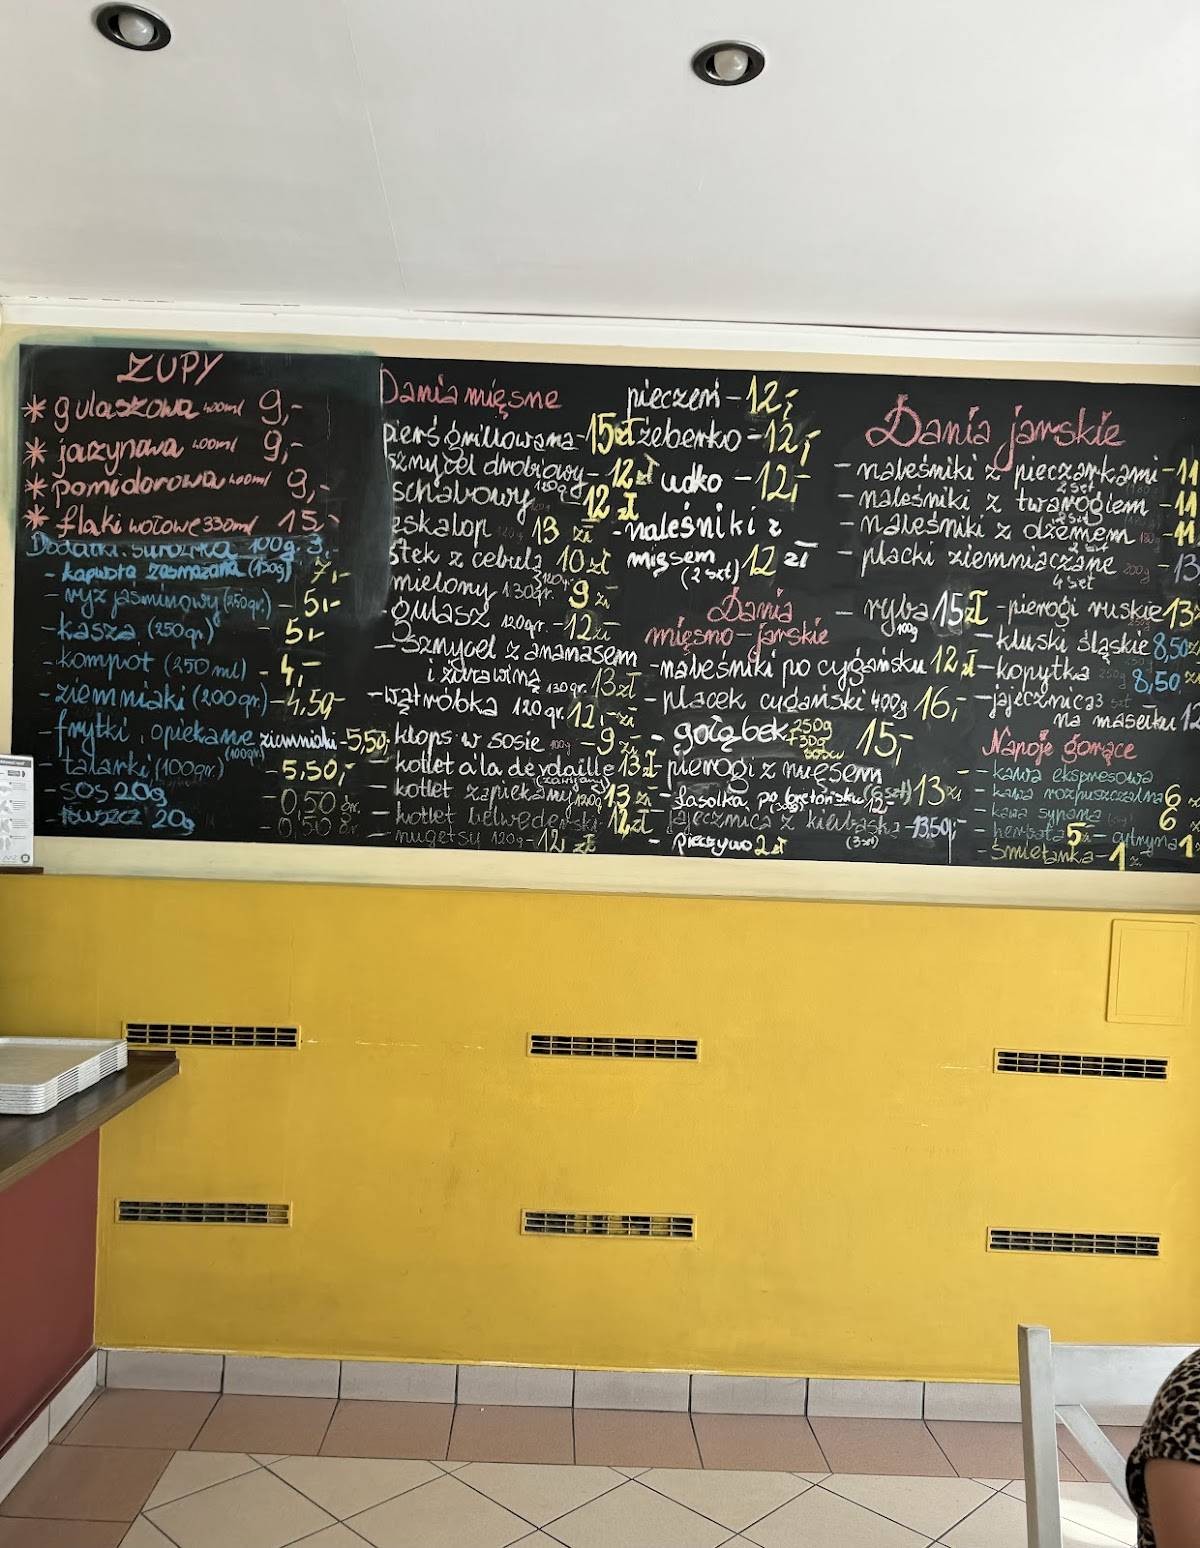 ZUPY
* gulaszowa 400ml 9,-
* jarzynowa 400ml 9,-
* pomidorowa 400ml 9,-
* flaki wołowe 330ml 15,-
Dodatki: surówka 100g. 3,-
- kapusta zasmażana (150g) 7,-
- ryż jaśminowy (250gr.) - 5,-
- kasza (250gr) - 5,-
- kompot (250ml) - 4,-
- ziemniaki (200gr) - 4,50,-
- frytki, opiekane ziemniaki - 5,50,-
(100gr)
- talarki (100gr) - 5,50,-
- sos 20g - 0,50 gr.
20g - 0,50 gr.
Dania mięsne
pierś grillowana - 15 zł
sznycel drobiowy - 12 zł
schabowy 12 zł
eskalop 13 zł
stek z cebulą 10 zł
mielony 130gr. 9 zł
- gulasz 120gr. - 12 zł
- Sznycel z ananasem
i żurawiną 130gr. 13 zł
- wątróbka 120gr. 12,- zł
- klops w sosie 100g - 9 zł
- kotlet a'la de volaille 13 zł
- kotlet zapiekany 120g 13 zł
- kotlet belwederski 12 zł
- nugetsy 120g - 12 zł
pieczeń - 12,-
żeberko - 12,-
udko - 12,-
- naleśniki z
mięsem 12 zł
(2 szt)
Dania
mięsno-jarskie
- naleśniki po cygańsku 12 zł
- placek cygański 400g 16,-
- gołąbek 250g 15,-
- pierogi z mięsem (6szt) 13 zł
- fasolka po bretońsku 12,-
- jajecznica z kiełbaską - 13,50,-
(3szt)
- pieczywo 2 zł
Dania jarskie
- naleśniki z pieczarkami - 11
2 szt
- naleśniki z twarogiem - 11
2 szt
- naleśniki z dżemem - 11
2 szt
- placki ziemniaczane 200g - 13
4 szt
- ryba 15 zł
100g
- pierogi ruskie 13
- kluski śląskie 8,50 zł
- kopytka 250g 8,50 zł
- jajecznica 3 szt
na masełku
Napoje gorące
- kawa ekspresowa
- kawa rozpuszczalna 6
- kawa sypana 6
- herbata 5 zł - cytryna 1
- śmietanka - 1 zł